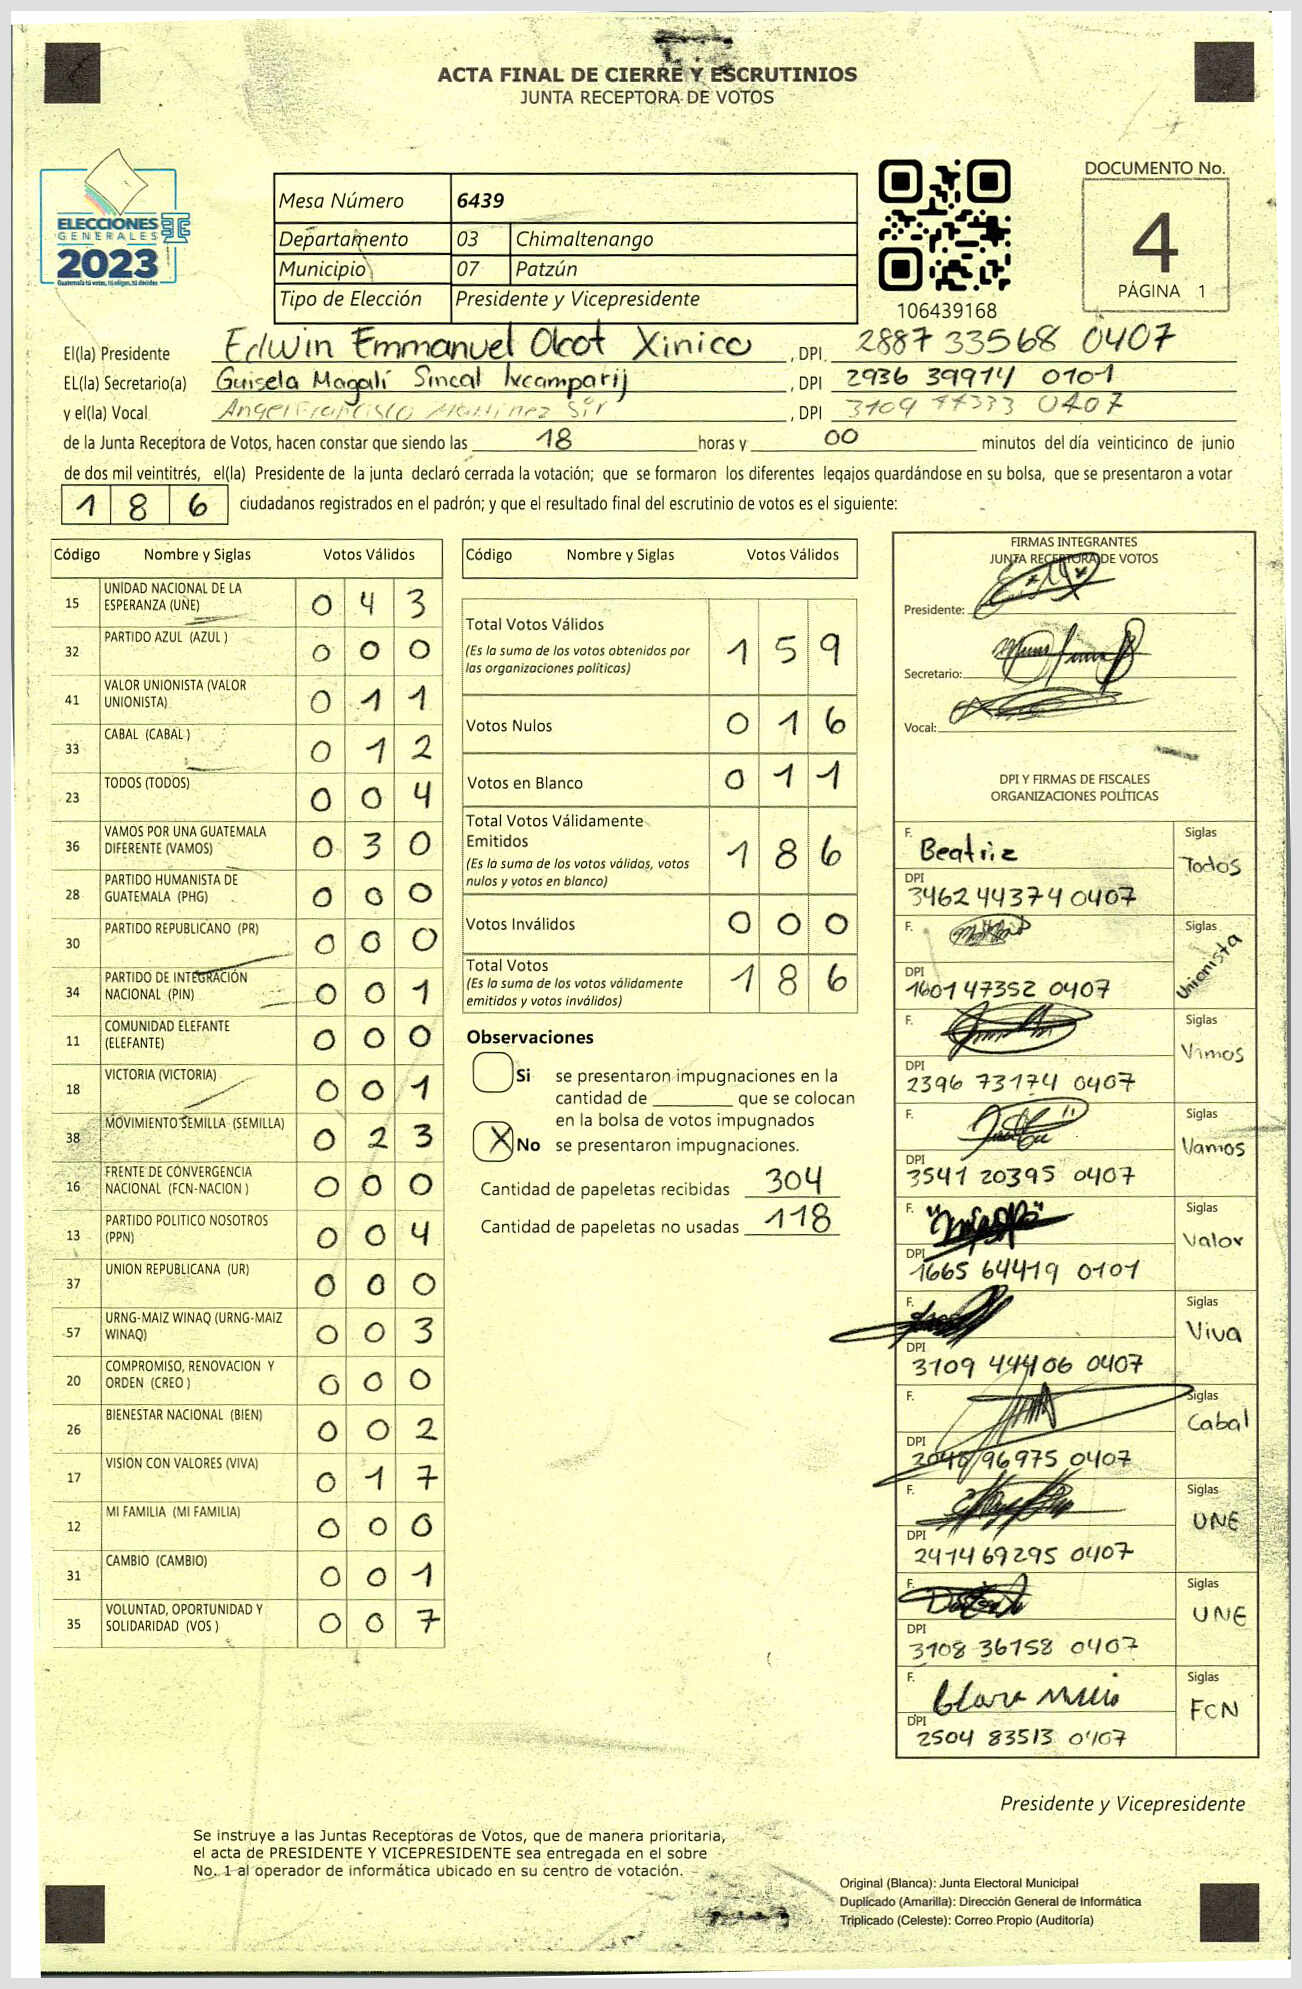 ACTA FINAL DE CIERRE Y ESCRUTINIOS
JUNTA RECEPTORA DE VOTOS
ELECCIONES
GENERALES
2023
Guatemala tú votas, tú eliges, tú decides
Mesa Número 6439
Departamento 03 Chimaltenango
Municipio 07 Patzún
Tipo de Elección Presidente y Vicepresidente
106439168
DOCUMENTO No.
4
PÁGINA 1
El(la) Presidente Edwin Emmanuel Olcot Xinico , DPI. 2887 33568 0407
EL(la) Secretario(a) Guisela Magalí Sincal Ixcamparij , DPI 2936 39914 0101
y el(la) Vocal Angel Francisco Martinez Sir , DPI 3109 44333 0407
de la Junta Receptora de Votos, hacen constar que siendo las 18 horas y 00 minutos del día veinticinco de junio
de dos mil veintitrés, el(la) Presidente de la junta declaró cerrada la votación; que se formaron los diferentes legajos quardándose en su bolsa, que se presentaron a votar
186 ciudadanos registrados en el padrón; y que el resultado final del escrutinio de votos es el siguiente:
Código Nombre y Siglas Votos Válidos
15 UNIDAD NACIONAL DE LA ESPERANZA (UNE) 0 4 3
32 PARTIDO AZUL (AZUL ) 0 0 0
41 VALOR UNIONISTA (VALOR UNIONISTA) 0 1 1
33 CABAL (CABAL ) 0 1 2
23 TODOS (TODOS) 0 0 4
36 VAMOS POR UNA GUATEMALA DIFERENTE (VAMOS) 0 3 0
28 PARTIDO HUMANISTA DE GUATEMALA (PHG) 0 0 0
30 PARTIDO REPUBLICANO (PR) 0 0 0
34 PARTIDO DE INTEGRACIÓN NACIONAL (PIN) 0 0 1
11 COMUNIDAD ELEFANTE (ELEFANTE) 0 0 0
18 VICTORIA (VICTORIA) 0 0 1
38 MOVIMIENTO SEMILLA (SEMILLA) 0 2 3
16 FRENTE DE CONVERGENCIA NACIONAL (FCN-NACION ) 0 0 0
13 PARTIDO POLITICO NOSOTROS (PPN) 0 0 4
37 UNION REPUBLICANA (UR) 0 0 0
57 URNG-MAIZ WINAQ (URNG-MAIZ WINAQ) 0 0 3
20 COMPROMISO, RENOVACION Y ORDEN (CREO ) 0 0 0
26 BIENESTAR NACIONAL (BIEN) 0 0 2
17 VISION CON VALORES (VIVA) 0 1 7
12 MI FAMILIA (MI FAMILIA) 0 0 0
31 CAMBIO (CAMBIO) 0 0 1
35 VOLUNTAD, OPORTUNIDAD Y SOLIDARIDAD (VOS ) 0 0 7
Código Nombre y Siglas Votos Válidos
Total Votos Válidos 1 5 9
(Es la suma de los votos obtenidos por
las organizaciones políticas)
Votos Nulos 0 1 6
Votos en Blanco 0 1 1
Total Votos Válidamente
Emitidos 1 8 6
(Es la suma de los votos válidos, votos
nulos y votos en blanco)
Votos Inválidos 0 0 0
Total Votos 1 8 6
(Es la suma de los votos válidamente
emitidos y votos inválidos)
Observaciones
Si se presentaron impugnaciones en la
cantidad de _________ que se colocan
en la bolsa de votos impugnados
X No se presentaron impugnaciones.
Cantidad de papeletas recibidas 304
Cantidad de papeletas no usadas 118
FIRMAS INTEGRANTES
JUNTA RECEPTORA DE VOTOS
Presidente:
Secretario:
Vocal:
DPI Y FIRMAS DE FISCALES
ORGANIZACIONES POLÍTICAS
F. Beatriz Siglas Todos
DPI 3462 44374 0407
F. Siglas Unionista
DPI 1601 47352 0407
F. Siglas Vimos
DPI 2396 73174 0407
F. Siglas Vamos
DPI 3541 20395 0407
F. Siglas Valor
DPI 1665 64419 0101
F. Siglas Viva
DPI 3109 44406 0407
F. Siglas Cabal
DPI 2048 96975 0407
F. Siglas UNE
DPI 2414 69295 0407
F. Siglas UNE
DPI 3108 36158 0407
F. Siglas FCN
DPI 2504 83513 0407
Presidente y Vicepresidente
Se instruye a las Juntas Receptoras de Votos, que de manera prioritaria,
el acta de PRESIDENTE Y VICEPRESIDENTE sea entregada en el sobre
No. 1 al operador de informática ubicado en su centro de votación.
Original (Blanca): Junta Electoral Municipal
Duplicado (Amarilla): Dirección General de Informática
Triplicado (Celeste): Correo Propio (Auditoría)